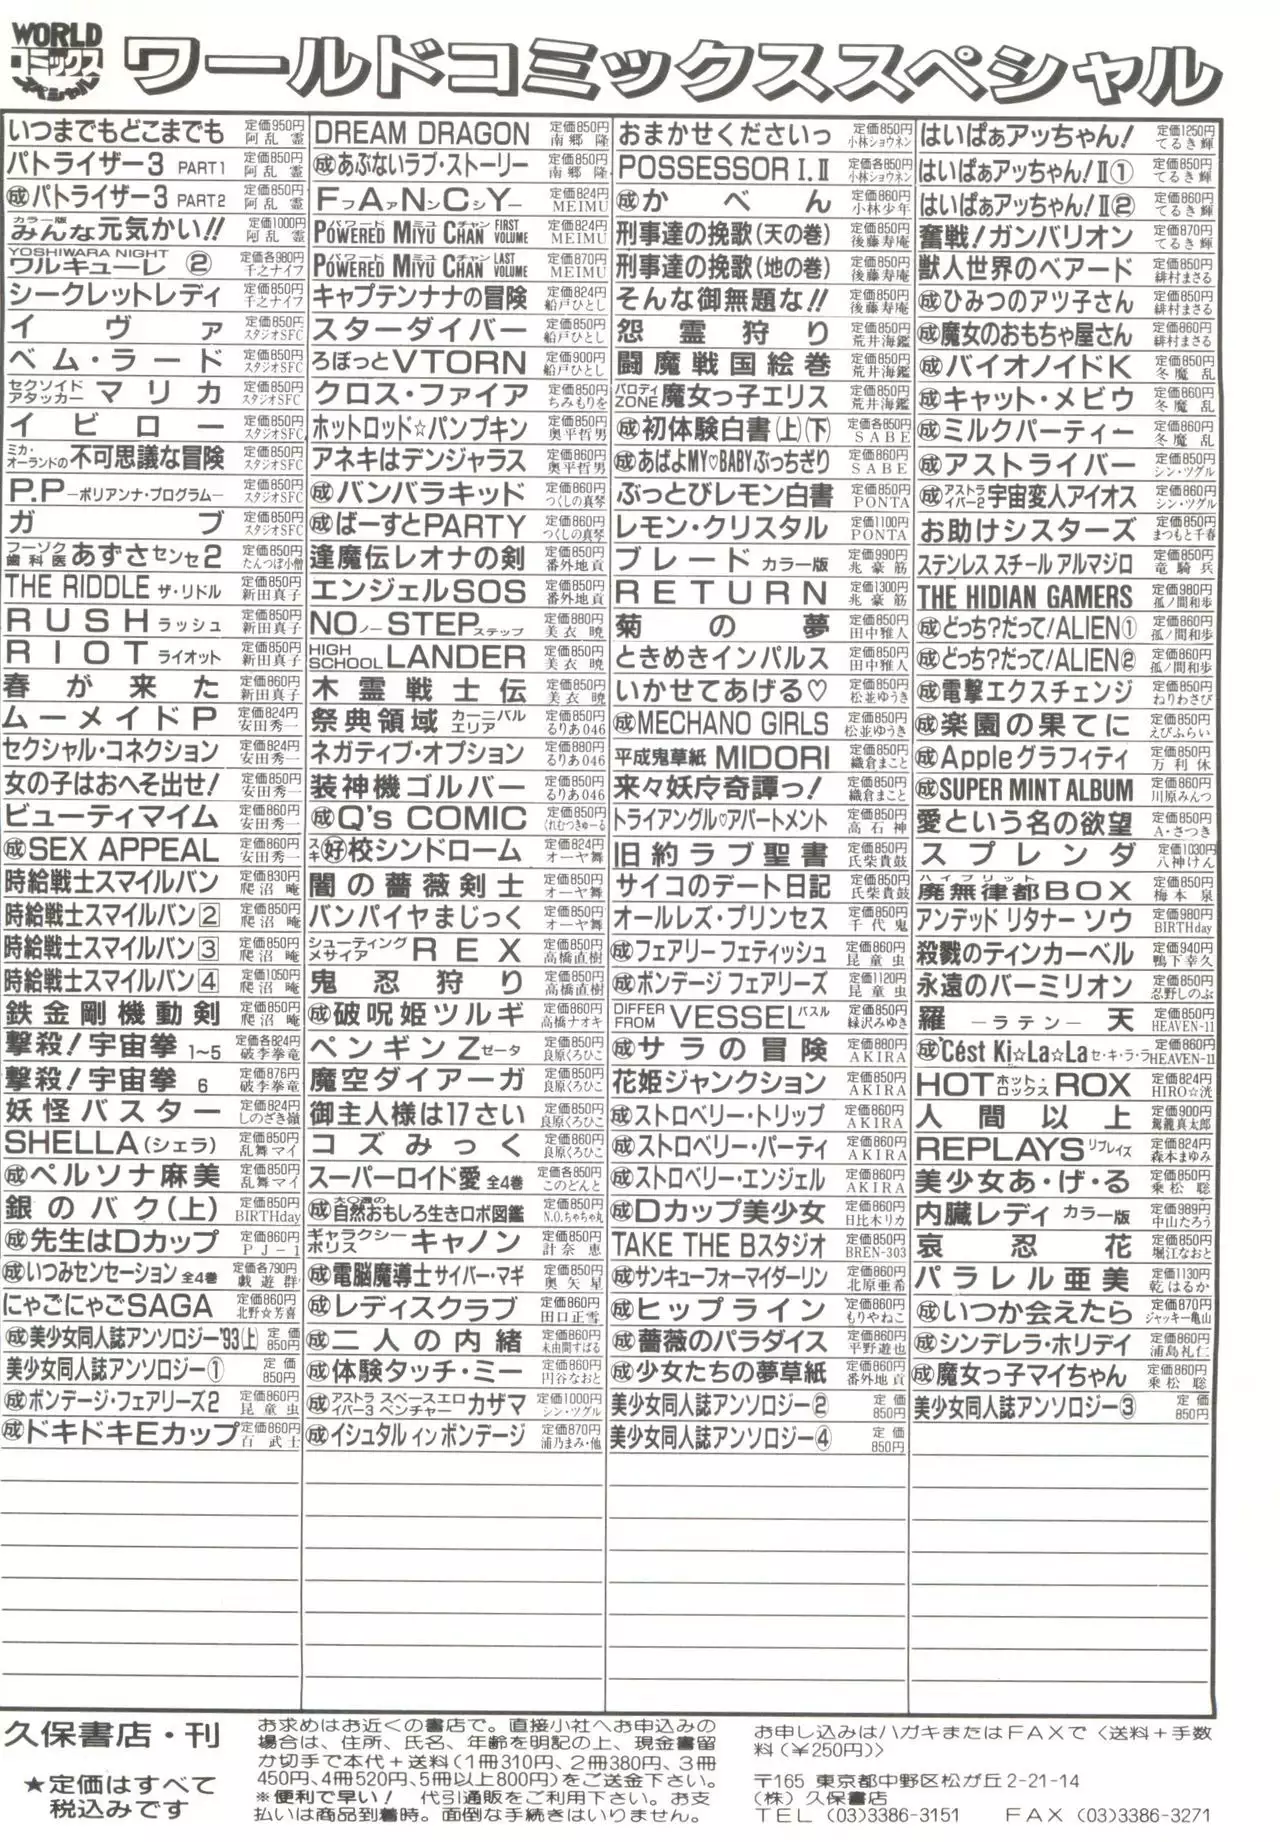 WORLD
コミックス
スペシャル
ワールドコミックススペシャル
いつまでもどこまでも 定価950円 阿乱霊
パトライザー3 PART1 定価850円 阿乱霊
成パトライザー3 PART2 定価850円 阿乱霊
カラー版 みんな元気かい!! 定価1000円 阿乱霊
YOSHIWARA NIGHT ワルキューレ ② 定価各980円 千之ナイフ
シークレットレディ 定価850円 千之ナイフ
イヴァ 定価850円 スタジオSFC
ベム・ラード 定価850円 スタジオSFC
セクソイドアタッカー マリカ 定価850円 スタジオSFC
イビロー 定価850円 スタジオSFC
ミカ・オーランドの 不可思議な冒険 定価850円 スタジオSFC
P.P―ポリアンナ・プログラム― 定価850円 スタジオSFC
ガブ 定価850円 スタジオSFC
フーゾク歯科医 あずさセンセ2 定価850円 たんつぼ小僧
THE RIDDLE ザ・リドル 定価850円 新田真子
RUSH ラッシュ 定価850円 新田真子
RIOT ライオット 定価850円 新田真子
春が来た 定価860円 新田真子
ムーメイドP 定価824円 安田秀一
セクシャル・コネクション 定価824円 安田秀一
女の子はおへそ出せ! 定価850円 安田秀一
ビューティマイム 定価860円 安田秀一
成SEX APPEAL 定価860円 安田秀一
時給戦士スマイルバン 定価830円 爬沼庵
時給戦士スマイルバン2 定価850円 爬沼庵
時給戦士スマイルバン3 定価850円 爬沼庵
時給戦士スマイルバン4 定価1050円 爬沼庵
鉄金剛機動剣 定価850円 爬沼庵
撃殺!宇宙拳 1~5 定価各824円 破李拳竜
撃殺!宇宙拳 6 定価876円 破李拳竜
妖怪バスター 定価824円 しのざき嶺
SHELLA(シェラ) 定価850円 乱舞マイ
成ペルソナ麻美 定価850円 乱舞マイ
銀のバク(上) 定価850円 BIRTHday
成先生はDカップ 定価860円 PJ-1
成いつみセンセーション 全4巻 定価各790円 戯遊群
にゃごにゃごSAGA 定価860円 北野☆芳喜
成美少女同人誌アンソロジー'93(上) 定価850円
美少女同人誌アンソロジー① 定価850円
成ボンデージ・フェアリーズ2 定価860円 昆童虫
成ドキドキEカップ 定価860円 百武士
DREAM DRAGON 定価850円 南郷隆
成あぶないラブ・ストーリー 定価850円 南郷隆
FファAンNCシYー 定価824円 MEIMU
パワード ミユ チャン POWERED MIYU CHAN FIRST VOLUME 定価824円 MEIMU
パワード ミユ チャン POWERED MIYU CHAN LAST VOLUME 定価870円 MEIMU
キャプテンナナの冒険 定価824円 船戸ひとし
スターダイバー 定価850円 船戸ひとし
ろぼっとVTORN 定価900円 船戸ひとし
クロス・ファイア 定価850円 ちみもりを
ホットロッド☆パンプキン 定価850円 奥平哲男
アネキはデンジャラス 定価860円 奥平哲男
成バンバラキッド 定価860円 つくしの真琴
成ばーすとPARTY 定価860円 つくしの真琴
逢魔伝レオナの剣 定価850円 番外地貢
エンジェルSOS 定価850円 番外地貢
NOノーSTEPステップ 定価880円 美衣暁
HIGH SCHOOL LANDER 定価850円 美衣暁
木霊戦士伝 定価850円 美衣暁
祭典領域 カーニバルエリア 定価850円 るりあ046
ネガティブ・オプション 定価880円 るりあ046
装神機ゴルバー 定価850円 るりあ046
成Q's COMIC 定価850円 くれむつきゅーる
スキ 好校シンドローム 定価824円 オーヤ舞
闇の薔薇剣士 定価850円 オーヤ舞
バンパイヤまじっく 定価850円 オーヤ舞
シューティングメサイア REX 定価850円 高橋直樹
鬼忍狩り 定価850円 高橋直樹
成破呪姫ツルギ 定価860円 高橋ナオキ
ペンギンZゼータ 定価850円 良原くろひこ
魔空ダイアーガ 定価850円 良原くろひこ
御主人様は17さい 定価850円 良原くろひこ
コズみっく 定価850円 良原くろひこ
スーパーロイド愛 全4巻 定価各850円 このどんと
成大○週の自然おもしろ生きロボ図鑑 定価850円 N.O.ちゃちゃ丸
ギャラクシーポリス キャノン 定価850円 計奈恵
成電脳魔導士サイバー・マギ 定価860円 奥矢星
成レディスクラブ 定価860円 田口正雪
成二人の内緒 定価860円 末由間すばる
成体験タッチ・ミー 定価860円 円谷なおと
成アストライバー3 スペースエロベンチャー カザマ 定価1000円 シン・ツグル
成イシュタル イン ボンデージ 定価870円 浦乃まみ・他
おまかせくださいっ 定価850円 小林ショウネン
POSSESSOR I.II 定価各850円 小林ショウネン
成かべん 定価860円 小林少年
刑事達の挽歌(天の巻) 定価850円 後藤寿庵
刑事達の挽歌(地の巻) 定価850円 後藤寿庵
そんな御無題な!! 定価850円 後藤寿庵
怨霊狩り 定価850円 荒井海鑑
闘魔戦国絵巻 定価850円 荒井海鑑
パロディZONE 魔女っ子エリス 定価850円 荒井海鑑
成初体験白書(上)(下) 定価各850円 SABE
成あばよMY♡BABYぶっちぎり 定価860円 SABE
ぶっとびレモン白書 定価850円 PONTA
レモン・クリスタル 定価1100円 PONTA
ブレード カラー版 定価990円 兆豪筋
RETURN 定価1300円 兆豪筋
菊の夢 定価850円 田中雅人
ときめきインパルス 定価850円 田中雅人
いかせてあげる♡ 定価850円 松並ゆうき
成MECHANO GIRLS 定価850円 松並ゆうき
平成鬼草紙 MIDORI 定価850円 織倉まこと
来々妖庁奇譚っ! 定価850円 織倉まこと
トライアングル♡アパートメント 定価850円 高石神
旧約ラブ聖書 定価850円 氏柴貴鼓
サイコのデート日記 定価850円 氏柴貴鼓
オールレズ・プリンセス 定価850円 千代鬼
成フェアリーフェティッシュ 定価860円 昆童虫
成ボンデージ フェアリーズ 定価1120円 昆童虫
DIFFER FROM VESSELバスル 定価850円 緑沢みゆき
成サラの冒険 定価880円 AKIRA
花姫ジャンクション 定価850円 AKIRA
成ストロベリー・トリップ 定価860円 AKIRA
成ストロベリー・パーティ 定価860円 AKIRA
成ストロベリー・エンジェル 定価850円 AKIRA
成Dカップ美少女 定価850円 日比木リカ
TAKE THE Bスタジオ 定価850円 BREN-303
成サンキューフォーマイダーリン 定価860円 北原亜希
成ヒップライン 定価860円 もりやねこ
成薔薇のパラダイス 定価860円 平野遊也
成少女たちの夢草紙 定価860円 番外地貢
美少女同人誌アンソロジー② 定価850円
美少女同人誌アンソロジー④ 定価850円
はいぱぁアッちゃん! 定価1250円 てるき輝
はいぱぁアッちゃん!II① 定価850円 てるき輝
はいぱぁアッちゃん!II② 定価860円 てるき輝
奮戦!ガンバリオン 定価870円 てるき輝
獣人世界のベアード 定価850円 緋村まさる
成ひみつのアツ子さん 定価850円 緋村まさる
成魔女のおもちゃ屋さん 定価850円 緋村まさる
成バイオノイドK 定価850円 冬魔乱
成キャット・メビウ 定価850円 冬魔乱
成ミルクパーティー 定価850円 冬魔乱
成アストライバー 定価850円 シン・ツグル
成アストライバー2 宇宙変人アイオス 定価860円 シン・ツグル
お助けシスターズ 定価850円 まつもと千春
ステンレス スチール アルマジロ 定価850円 竜騎兵
THE HIDIAN GAMERS 定価980円 孤ノ間和歩
成どっち?だって!ALIEN① 定価850円 孤ノ間和歩
成どっち?だって!ALIEN② 定価860円 孤ノ間和歩
成電撃エクスチェンジ 定価850円 ねりわさび
成楽園の果てに 定価850円 えびふらい
成Appleグラフィティ 定価850円 万利休
成SUPER MINT ALBUM 定価850円 川原みんつ
愛という名の欲望 定価850円 A・さつき
スプレンダ 定価1030円 八神けん
ハイブリット 廃無律都BOX 定価850円 梅本泉
アンデッド リタナー ソウ 定価980円 BIRTHday
殺戮のティンカーベル 定価940円 鴨下幸久
永遠のバーミリオン 定価850円 忍野しのぶ
羅―ラテン―天 定価850円 HEAVEN-11
成'Cést Ki☆La☆La セ・キ・ラ・ラ 定価860円 HEAVEN-11
HOTホット・ロックスROX 定価824円 HIRO☆洸
人間以上 定価900円 駕籠真太郎
REPLAYSリプレイズ 定価824円 森本まゆみ
美少女あ・げ・る 定価850円 乗松聡
内臓レディ カラー版 定価989円 中山たろう
哀忍花 定価850円 堀江なおと
パラレル亜美 定価1130円 乾はるか
成いつか会えたら 定価870円 ジャッキー亀山
成シンデレラ・ホリデイ 定価850円 浦島礼仁
成魔女っ子マイちゃん 定価860円 乗松聡
美少女同人誌アンソロジー③ 定価850円
久保書店・刊
★定価はすべて
税込みです
お求めはお近くの書店で。直接小社へお申込みの
場合は、住所、氏名、年齢を明記の上、現金書留
か切手で本代+送料(1冊310円、2冊380円、3冊
450円、4冊520円、5冊以上800円)をご送金下さい。
※便利で早い! 代引通販をご利用下さい。お支
払いは商品到着時。面倒な手続きはいりません。
お申し込みはハガキまたはFAXで〈送料+手数
料(¥250円)〉
〒165 東京都中野区松が丘2-21-14
(株)久保書店
TEL (03)3386-3151 FAX (03)3386-3271